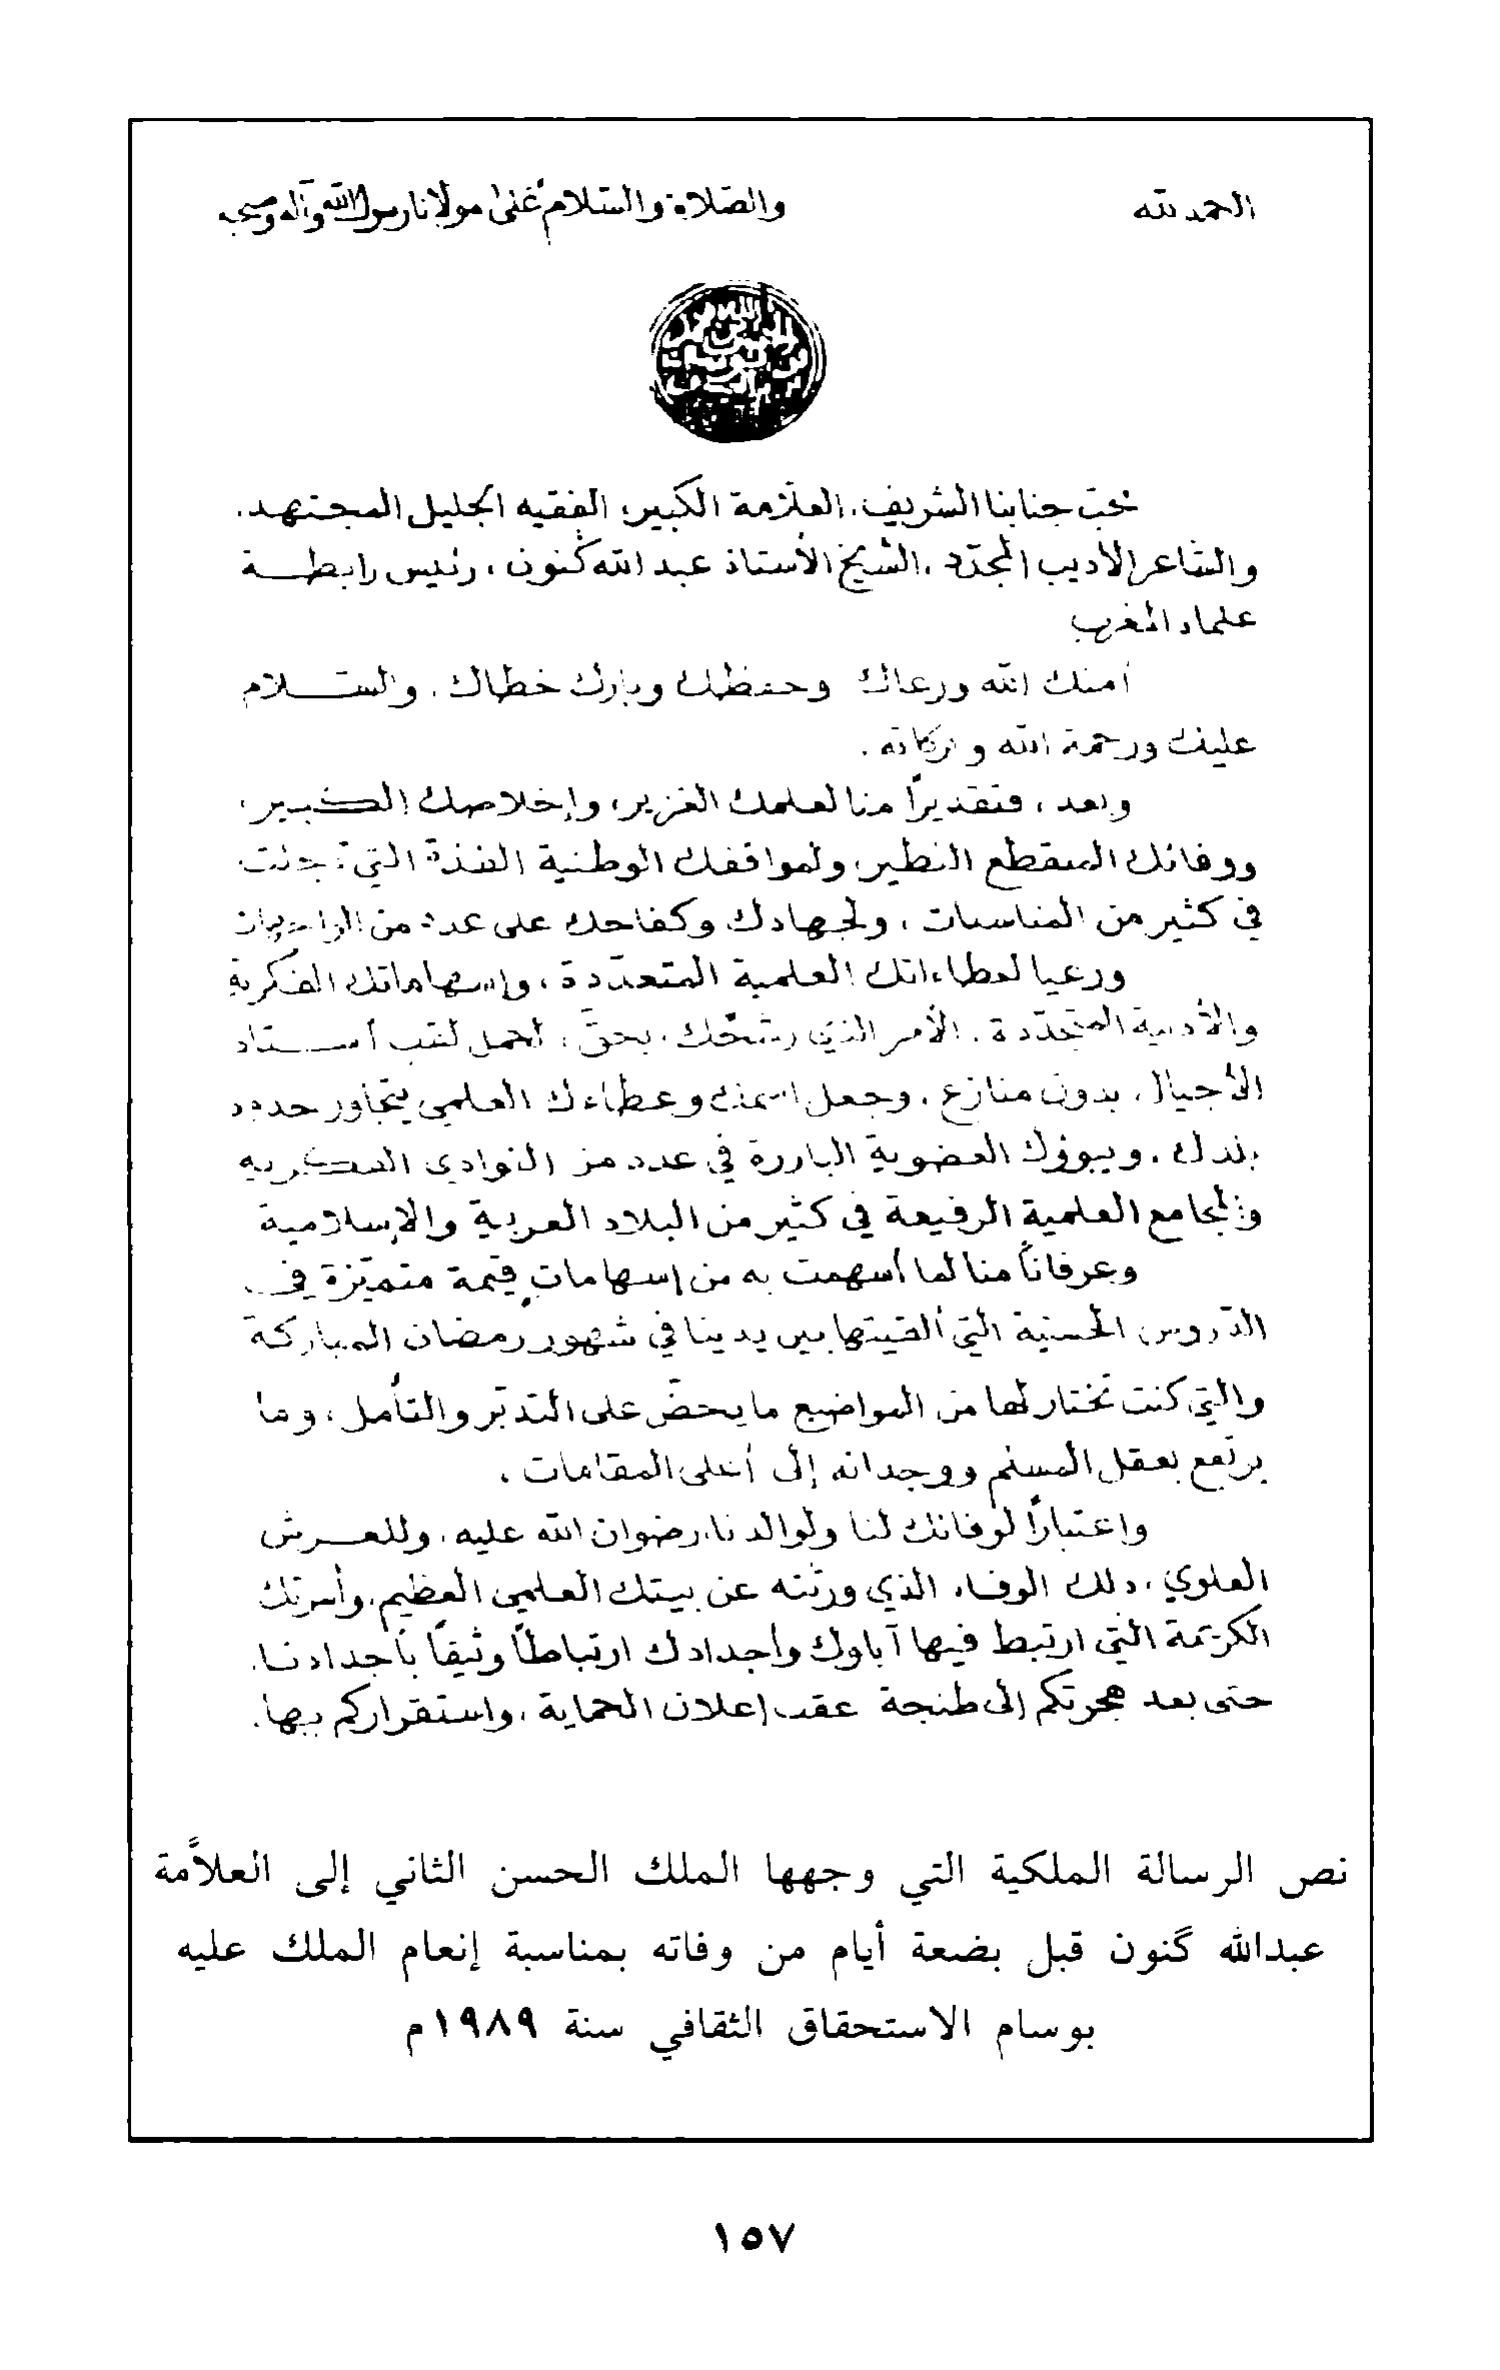 الحمد لله والصّلاة والسّلام على مولانا رسول الله وآله وصحبه
محبّ جنابنا الشريف، العلاّمة الكبير، الفقيه الجليل المجتهد،
والشاعر الأديب المجدّد، الشيخ الأستاذ عبد الله كنون، رئيس رابطة
علماء المغرب
أمنك الله ورعاك وحفظك وبارك خطاك، والسّلام
عليك ورحمة الله وبركاته.
وبعد، فتقديراً منا لعلمك الغزير، وإخلاصك الكبير،
ووفائك المنقطع النظير، ولمواقفك الوطنية الفذة التي تجلت
في كثير من المناسبات، ولجهادك وكفاحك على عدد من الواجهات
ورعيا لعطاءاتك العلمية المتعدّدة، وإسهاماتك الفكرية
والأدبية المتجدّدة، الأمر الذي رشّحك، بحقّ، لحمل لقب أستاذ
الأجيال، بدون منازع، وجعل اسمك وعطاءك العلمي يتجاوز حدود
بلدك، ويبوؤك العضوية البارزة في عدد من النوادي الفكرية
والمجامع العلمية الرفيعة في كثير من البلاد العربية والإسلامية
وعرفاناً منا لما أسهمت به من إسهاماتٍ قيّمة متميّزة في
الدّروس الحسنية التي ألقيتها بين يدينا في شهور رمضان المباركة
والتي كنت تختار لها من المواضيع ما يحضّ على التدبّر والتأمل، وما
يرتفع بعقل المسلم ووجدانه إلى أعلى المقامات،
واعتباراً لوفائك لنا ولوالدنا، رضوان الله عليه، وللعرش
العلوي، ذلك الوفاء الذي ورثته عن بيتك العلمي العظيم، وأسرتك
الكريمة التي ارتبط فيها آباوك وأجدادك ارتباطاً وثيقاً بأجدادنا،
حتى بعد هجرتكم إلى طنجة عقب إعلان الحماية، واستقراركم بها،
نص الرسالة الملكية التي وجهها الملك الحسن الثاني إلى العلاَّمة
عبدالله گنون قبل بضعة أيام من وفاته بمناسبة إنعام الملك عليه
بوسام الاستحقاق الثقافي سنة ١٩٨٩م
١٥٧